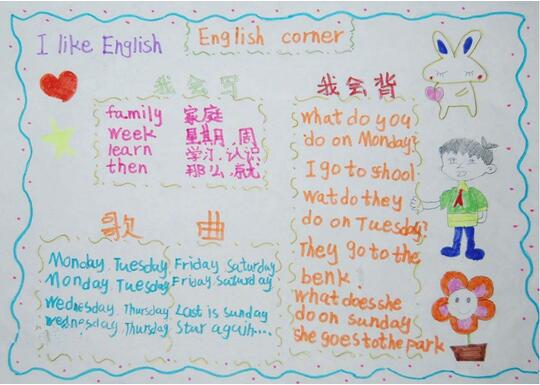 I like English
English corner
我会写
family 家庭
week 星期,周
learn 学习,认识
then 那么,就
我会背
what do you
do on Monday?
I go to school
wat do they
do on Tuesday?
They go to the
benk.
what does she
do on sunday
she goes to the park
歌曲
Monday Tuesday Friday Saturday
Monday Tuesday Friday Saturday
Wednesday Thursday Last is sunday
Wednesday Thursday Star again...